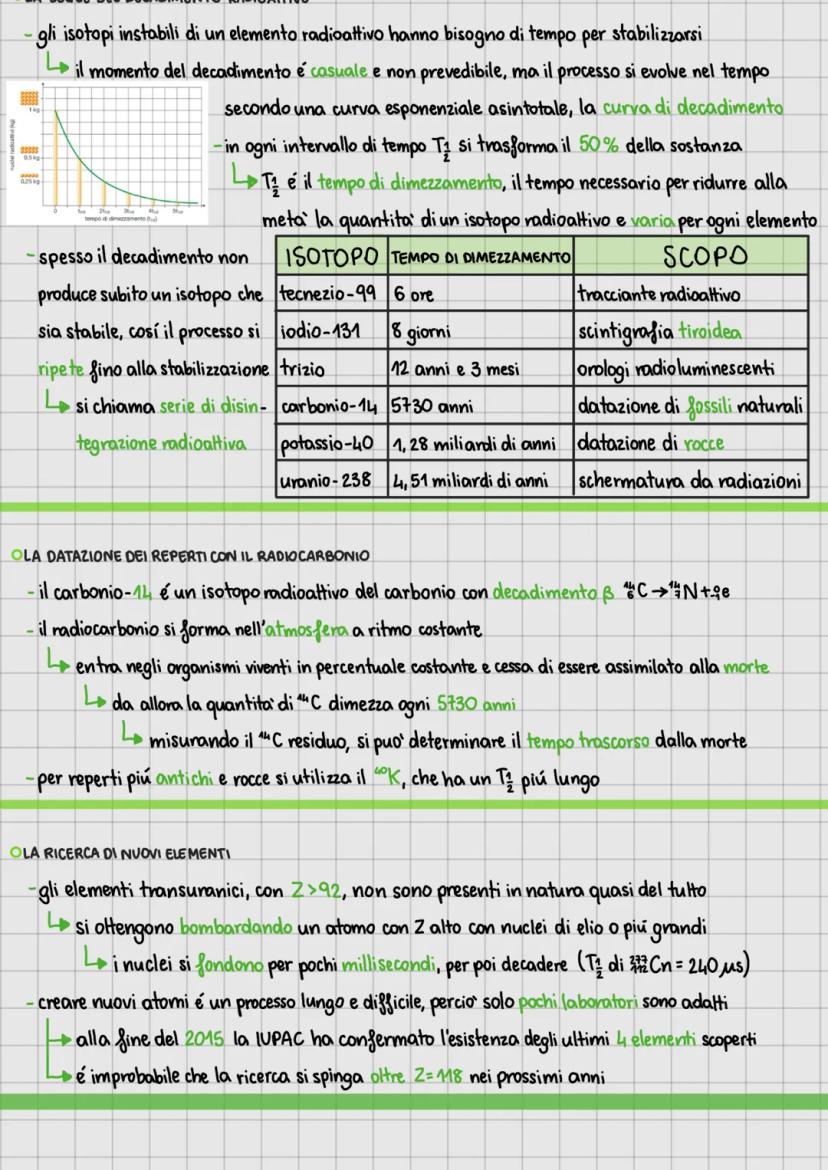 - gli isotopi instabili di un elemento radioattivo hanno bisogno di tempo per stabilizzarsi
↳ il momento del decadimento é casuale e non prevedibile, ma il processo si evolve nel tempo
secondo una curva esponenziale asintotale, la curva di decadimento
- in ogni intervallo di tempo T½ si trasforma il 50% della sostanza
↳ T½ é il tempo di dimezzamento, il tempo necessario per ridurre alla
metà la quantità di un isotopo radioattivo e varia per ogni elemento
nuclei radioattivi (kg)
1 kg
0,5 kg
0,25 kg
0 1t₁/₂ 2t₁/₂ 3t₁/₂ 4t₁/₂ 5t₁/₂
tempo di dimezzamento (t₁/₂)
- spesso il decadimento non
produce subito un isotopo che
sia stabile, cosí il processo si
ripete fino alla stabilizzazione
↳ si chiama serie di disin-
tegrazione radioattiva
ISOTOPO TEMPO DI DIMEZZAMENTO SCOPO
tecnezio-99 6 ore tracciante radioattivo
iodio-131 8 giorni scintigrafia tiroidea
trizio 12 anni e 3 mesi orologi radioluminescenti
carbonio-14 5730 anni datazione di fossili naturali
potassio-40 1,28 miliardi di anni datazione di rocce
uranio-238 4,51 miliardi di anni schermatura da radiazioni
LA DATAZIONE DEI REPERTI CON IL RADIOCARBONIO
- il carbonio-14 é un isotopo radioattivo del carbonio con decadimento β ¹⁴₆C → ¹⁴₇N + ⁰₋₁e
- il radiocarbonio si forma nell'atmosfera a ritmo costante
↳ entra negli organismi viventi in percentuale costante e cessa di essere assimilato alla morte
↳ da allora la quantità di ¹⁴C dimezza ogni 5730 anni
↳ misurando il ¹⁴C residuo, si può determinare il tempo trascorso dalla morte
- per reperti piú antichi e rocce si utilizza il ⁴⁰K, che ha un T½ piú lungo
LA RICERCA DI NUOVI ELEMENTI
- gli elementi transuranici, con Z>92, non sono presenti in natura quasi del tutto
↳ si ottengono bombardando un atomo con Z alto con nuclei di elio o piú grandi
↳ i nuclei si fondono per pochi millisecondi, per poi decadere (T½ di ²⁷⁷₁₁₂Cn = 240 μs)
- creare nuovi atomi é un processo lungo e difficile, perciò solo pochi laboratori sono adatti
↳ alla fine del 2015 la IUPAC ha confermato l'esistenza degli ultimi 4 elementi scoperti
↳ é improbabile che la ricerca si spinga oltre Z=118 nei prossimi anni